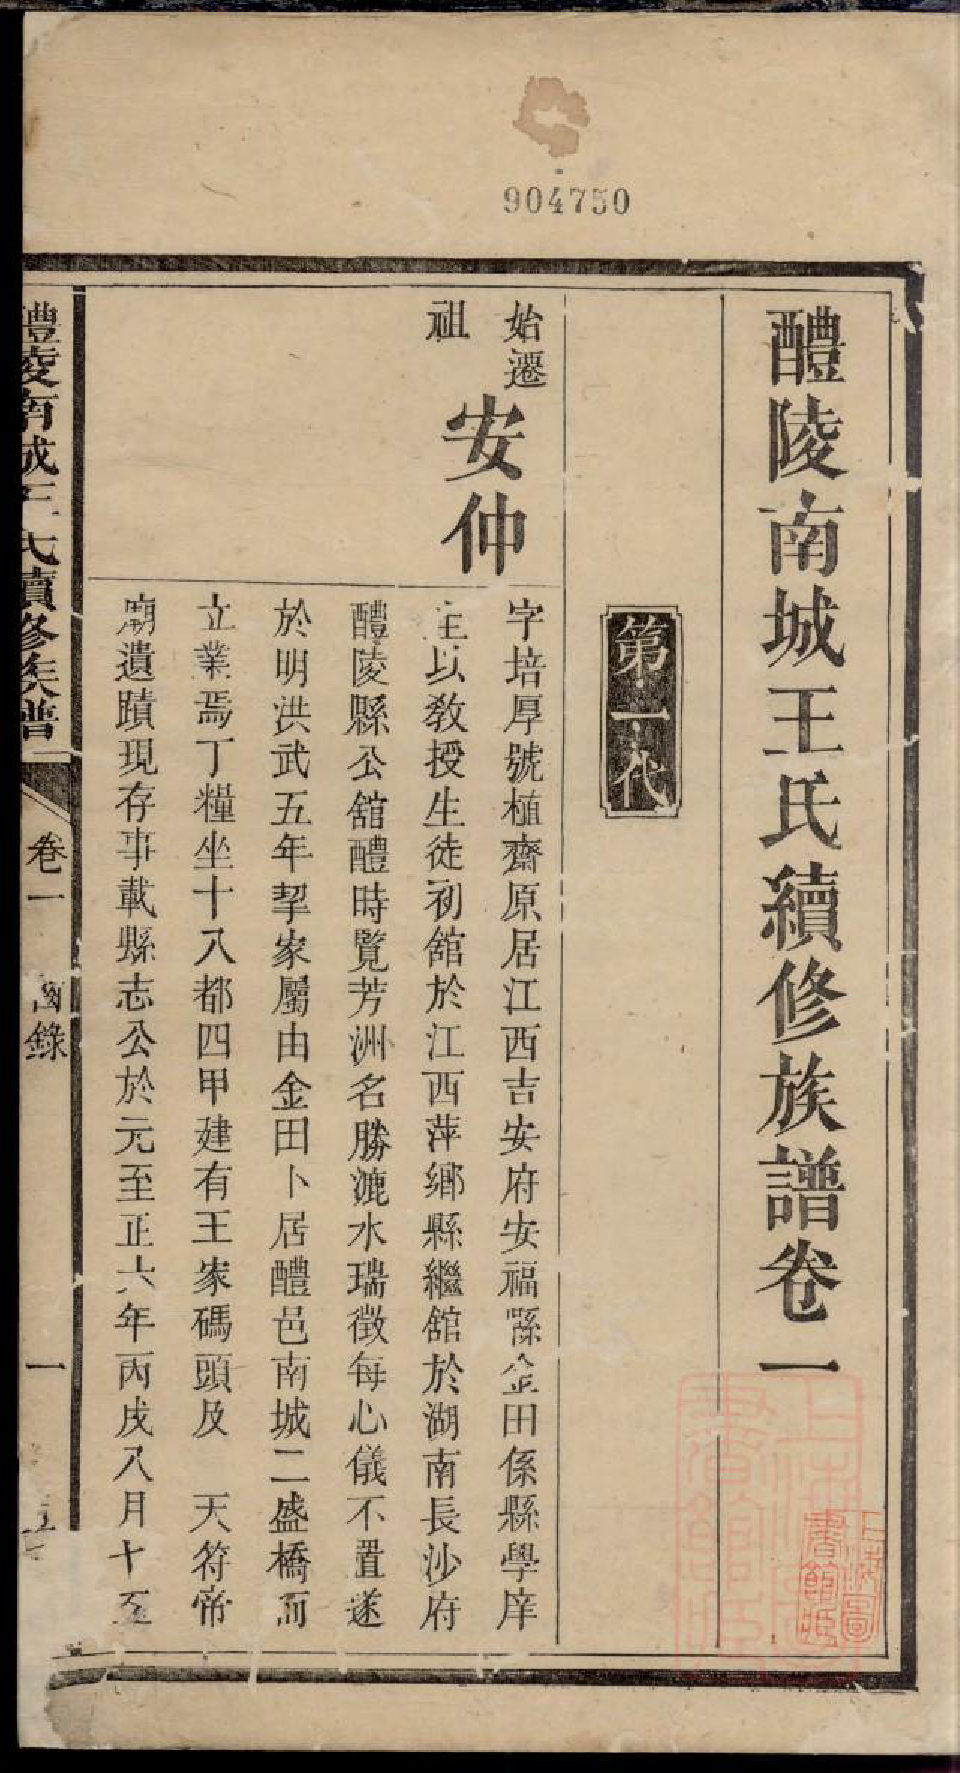 904750
醴陵南城王氏續修族譜卷一
第一代
始遷
祖
安仲
字培厚號植齋原居江西吉安府安福縣金田係縣學庠
生以教授生徒初舘於江西萍鄉縣繼舘於湖南長沙府
醴陵縣公舘醴時覽芳洲名勝漉水瑞徵每心儀不置遂
於明洪武五年挈家屬由金田卜居醴邑南城二盛橋而
立業焉丁糧坐十八都四甲建有王家碼頭及 天符帝
廟遺蹟現存事載縣志公於元至正六年丙戌八月十
醴陵南城王氏續修族譜
卷一
齒錄
一
上海圖書館藏